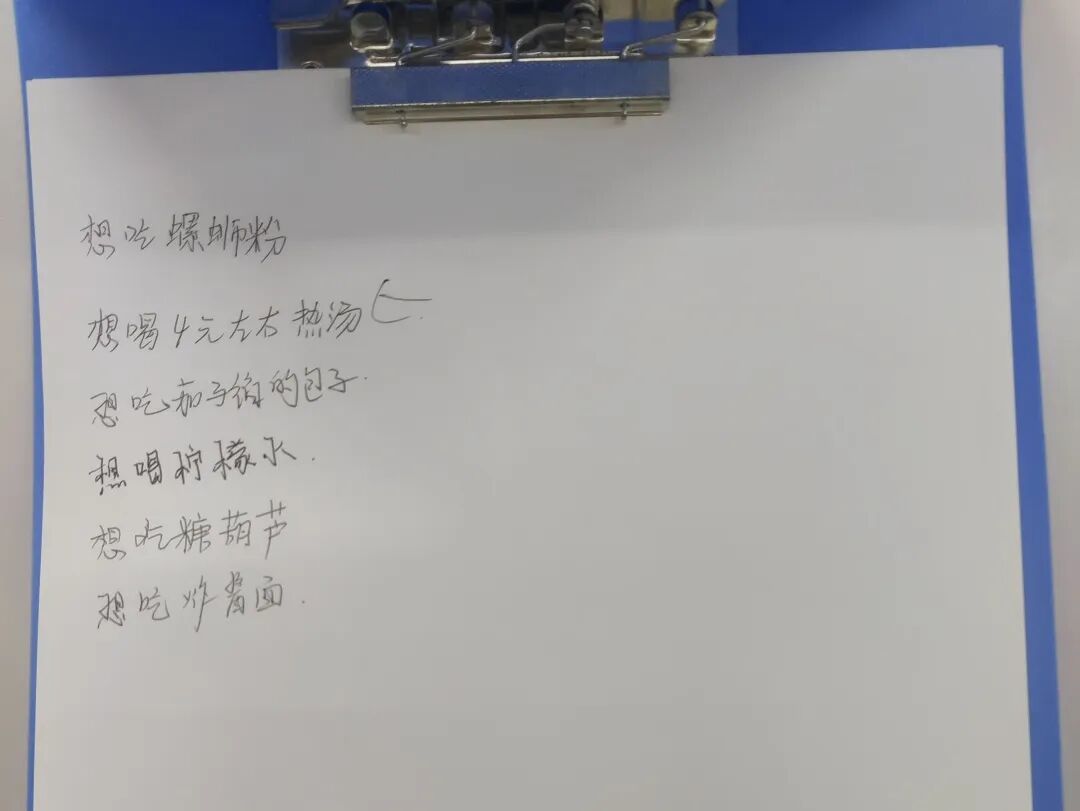 想吃螺蛳粉
想喝4元左右热汤
想吃茄子馅的包子.
想喝柠檬水.
想吃糖葫芦
想吃炸酱面.